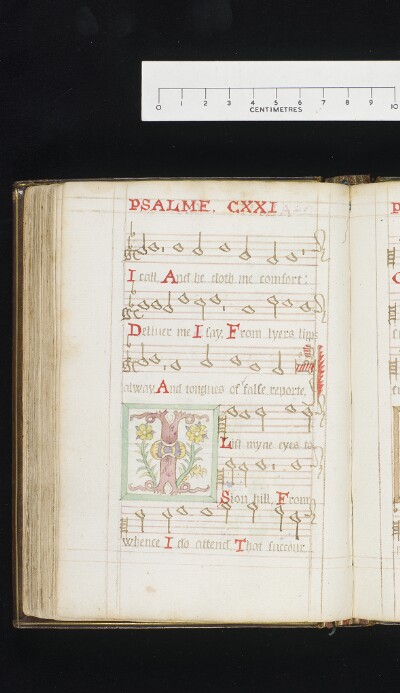 0 1 2 3 4 5 6 7 8 9 10
CENTIMETRES
PSALME. CXXI
I call, And he doth me comfort:
Deliuer me I say, From lyers lips
alway, And tongues of false reporte,
I Lift myne eyes to
Sion hill, From
whence I do attend, That succour